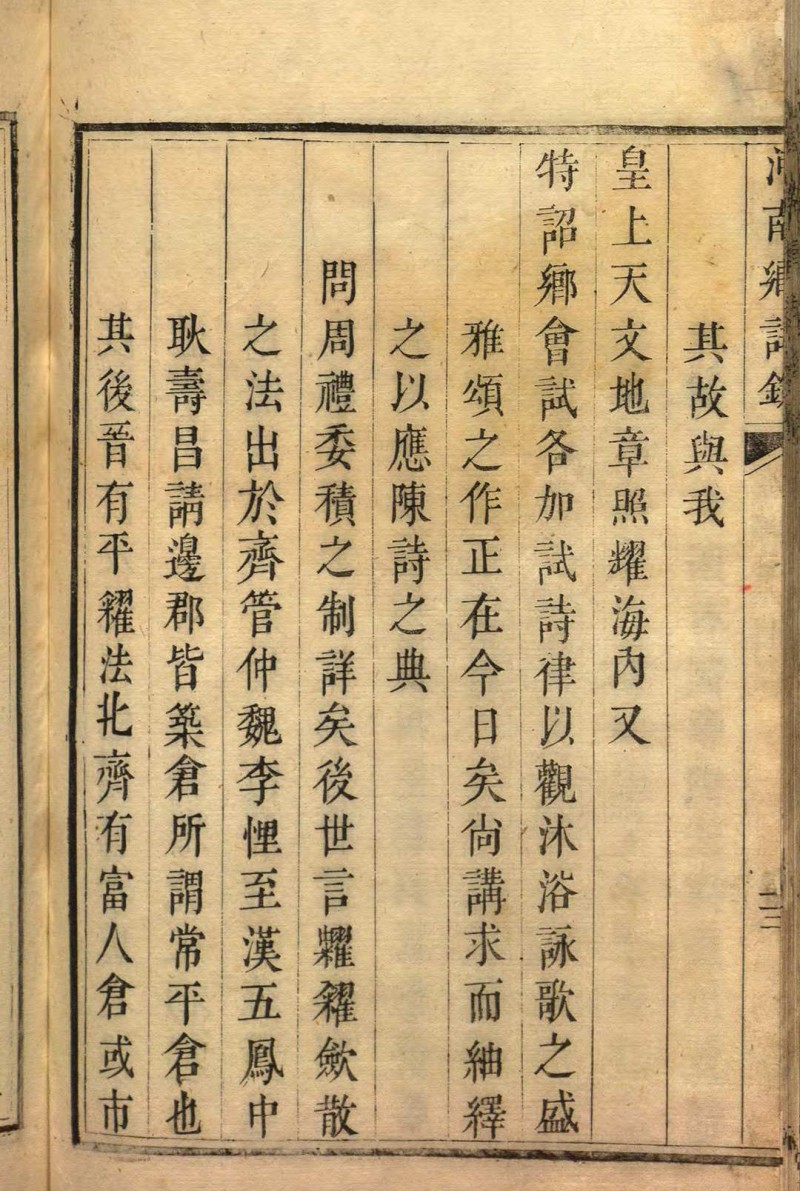 河南鄉試錄
二三
其故與我
皇上天文地章照耀海內又
特詔鄉會試各加試詩律以觀沐浴詠歌之盛
雅頌之作正在今日矣尙講求而紬繹
之以應陳詩之典
問周禮委積之制詳矣後世言糶糴歛散
之法出於齊管仲魏李悝至漢五鳳中
耿壽昌請邊郡皆築倉所謂常平倉也
其後晉有平糴法北齊有富人倉或市